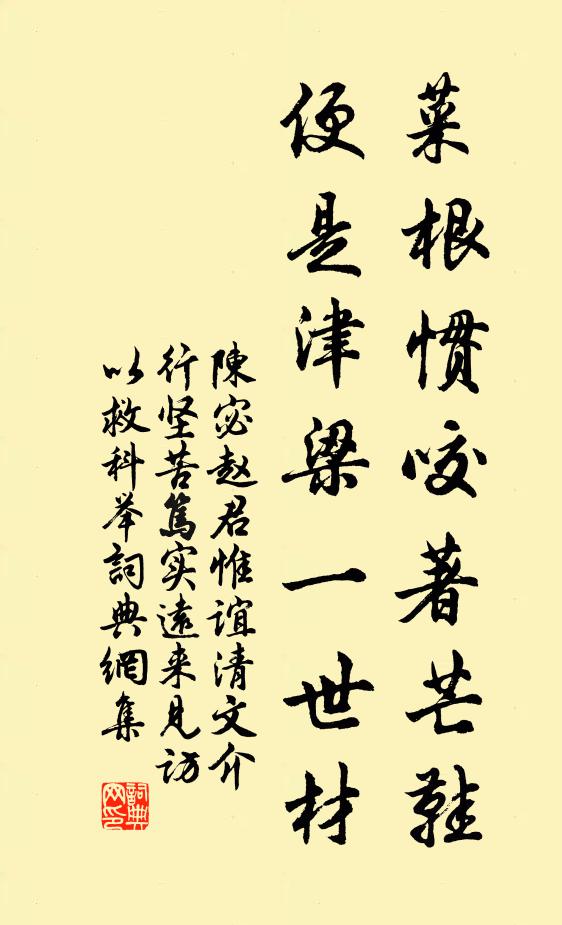 菜根惯咬著芒鞋
便是津梁一世材
陳宓赵君惟谊清文介
行坚苦篤实遠来見访
以救科举詞典網集
詞典網印